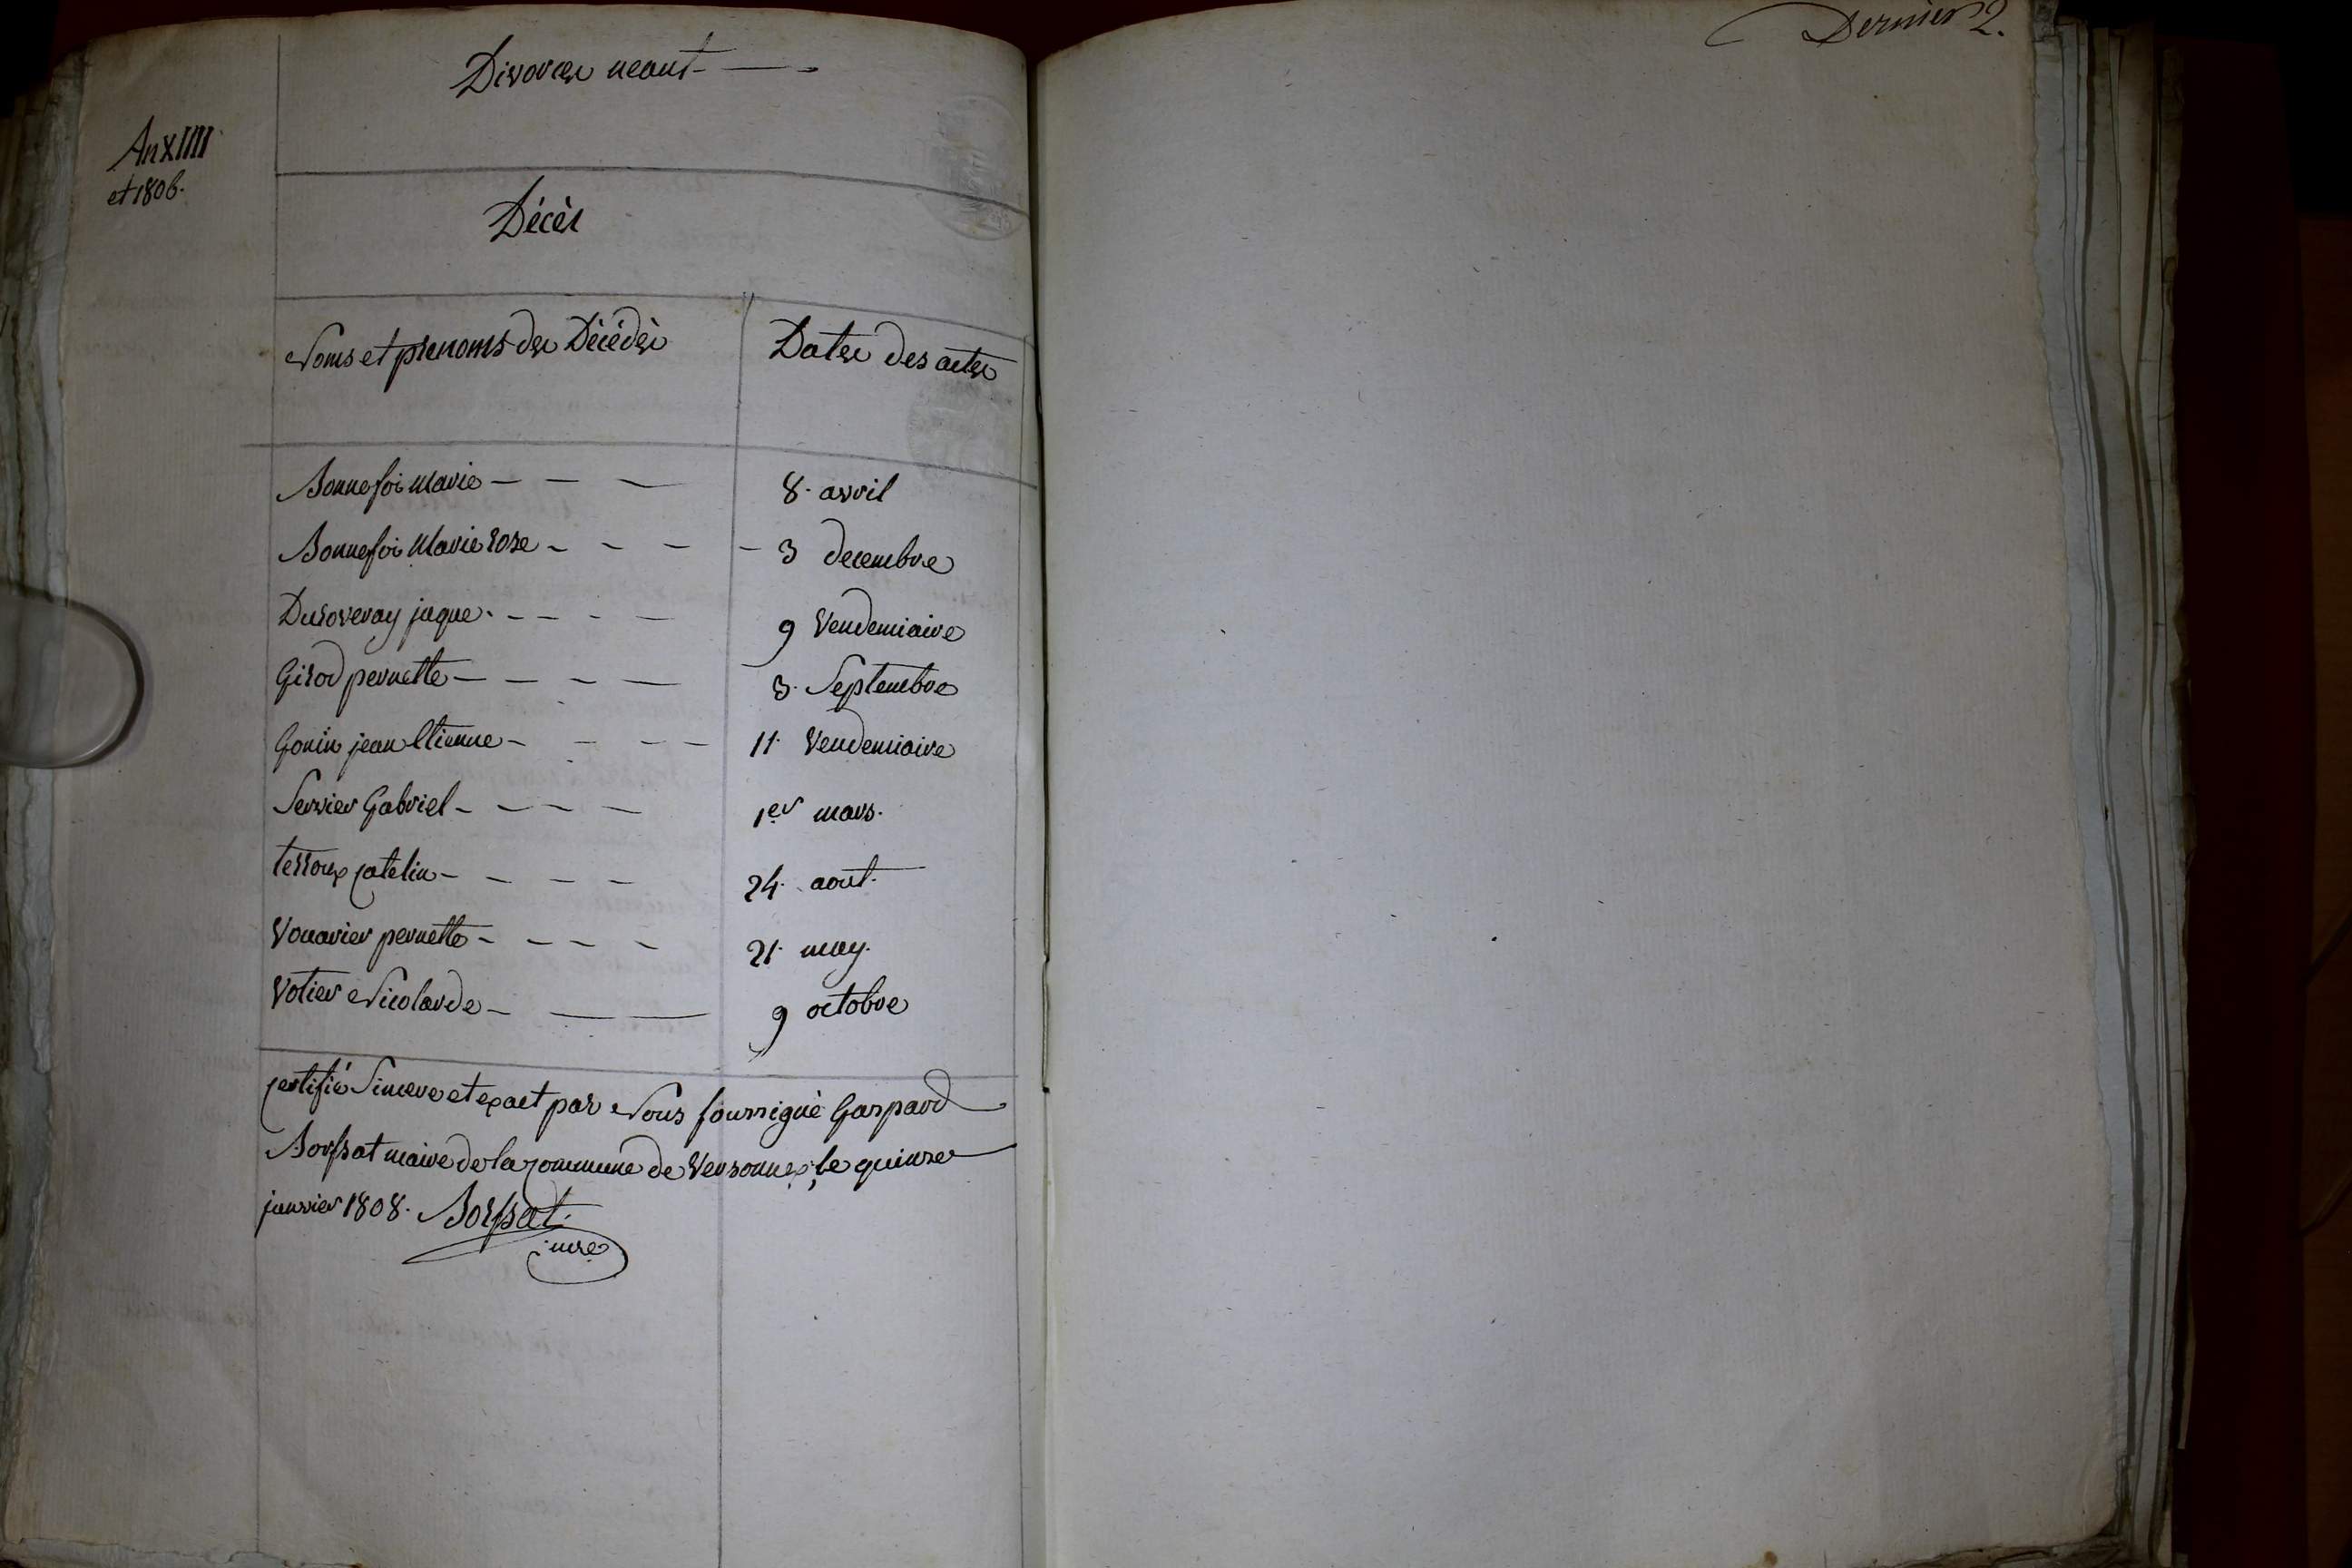 Divorces neant
An XIIII
et 1806.
Décès
Noms et prenoms des Dècèdès
Dates des actes
Bonnefoi Marie - - - 8. avril
Bonnefoi Marie Rose - - - - 3 decembre
Duroveray jaque. - - - - 9 Vendemiaire
Girod pernette - - - - 3. Septembre
Gonin jean Etienne - - - - 11. Vendemiaire
Servier Gabriel - - - - 1er mars.
terroux catelin - - - - 24. aout.
Vouarier pernette - - - - 21. may.
Votier Nicolarde - - - 9 octobre
certifié Sincere et exact par Nous soussignè Gaspard
Borssat maire de la commune de Versonnex, le quinze
janvier 1808. Borssat.
mre
Dernier 2.